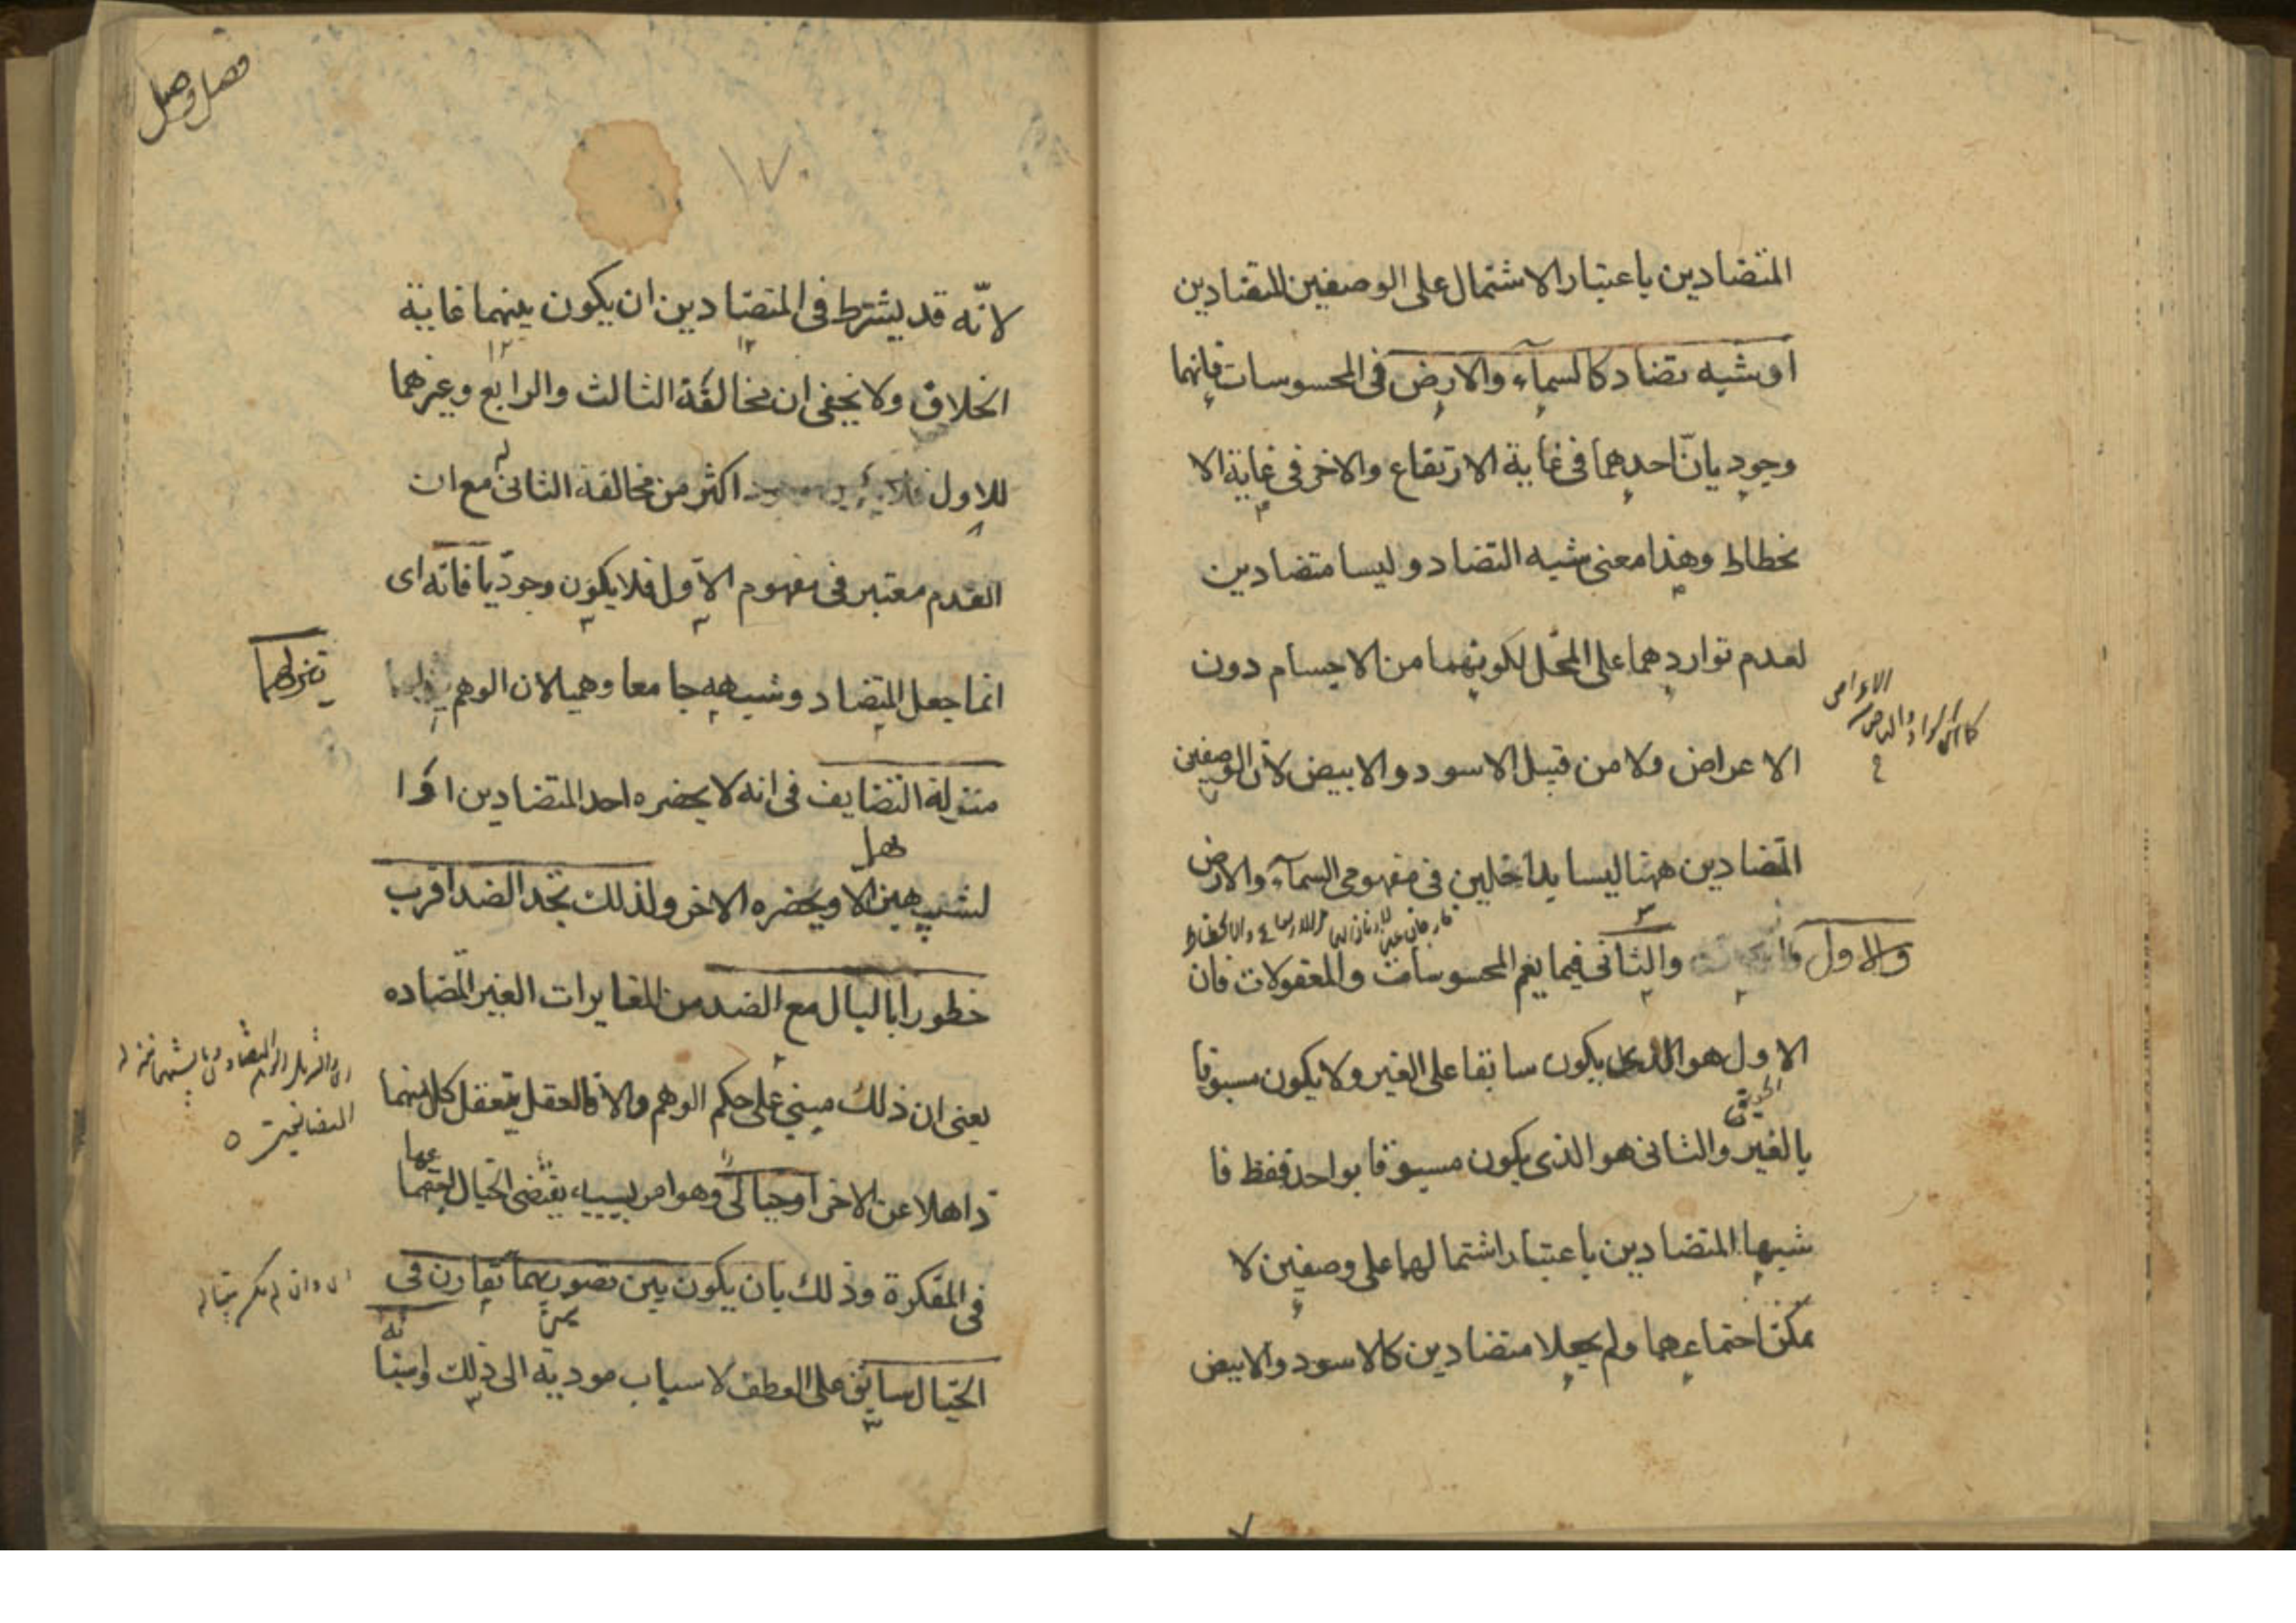 المتضادين باعتبار الاشتمال على الوصفين المتضادين
او شبه تضاد كالسمآء والارض فى المحسوسات فانهما
وجوديان احدهما فى غاية الارتفاع والاخر فى غاية الا
نحطاط وهذا معنى شبه التضاد وليسا متضادين
لعدم تواردهما على المحل لكونهما من الاجسام دون
الاعراض ولا من قبيل الاسود والابيض لان الوصفين
المتضادين ههنا ليسا بداخلين فى مفهومى السمآء والارض
والاول والثانى فيما يعم المحسوسات والمعقولات فان
الاول هو الذى يكون سابقا على الغير ولا يكون مسبوقا
بالغير والثانى هو الذى يكون مسبوقا بواحد فقط فا
شبها المتضادين باعتبار اشتمالهما على وصفين لا
يمكن اجتماعهما ولم يجعلا متضادين كالاسود والابيض
فصل وصل
١٧٠
لانّه قد يشترط فى المتضادين ان يكون بينهما غاية
الخلاف ولا يخفى ان مخالفة الثالث والرابع وغيرهما
للاول اكثر من مخالفة الثانى له مع ان
العدم معتبر فى مفهوم الاول فلا يكون وجوديا فانه اى
انما جعل التضاد وشبهه جامعا وهميا لان الوهم
ينزلهما
منزلة التضايف فى انه لا يحضره احد المتضادين او ا
لشبيهين الا ويحضره الاخر ولذلك تجد الضد اقرب
خطورا بالبال مع الضد من المغايرات الغير المتضاده
يعنى ان ذلك مبنى على حكم الوهم والا فالعقل يتعقل كل منهما
ذاهلا عن الاخر او خيالى وهو امر بسببه يقتضى الخيال اجتماعهما
فى المفكرة وذلك بان يكون بين تصوريهما تقارن فى
الخيال سابق على العطف لاسباب مودية الى ذلك واسبابه